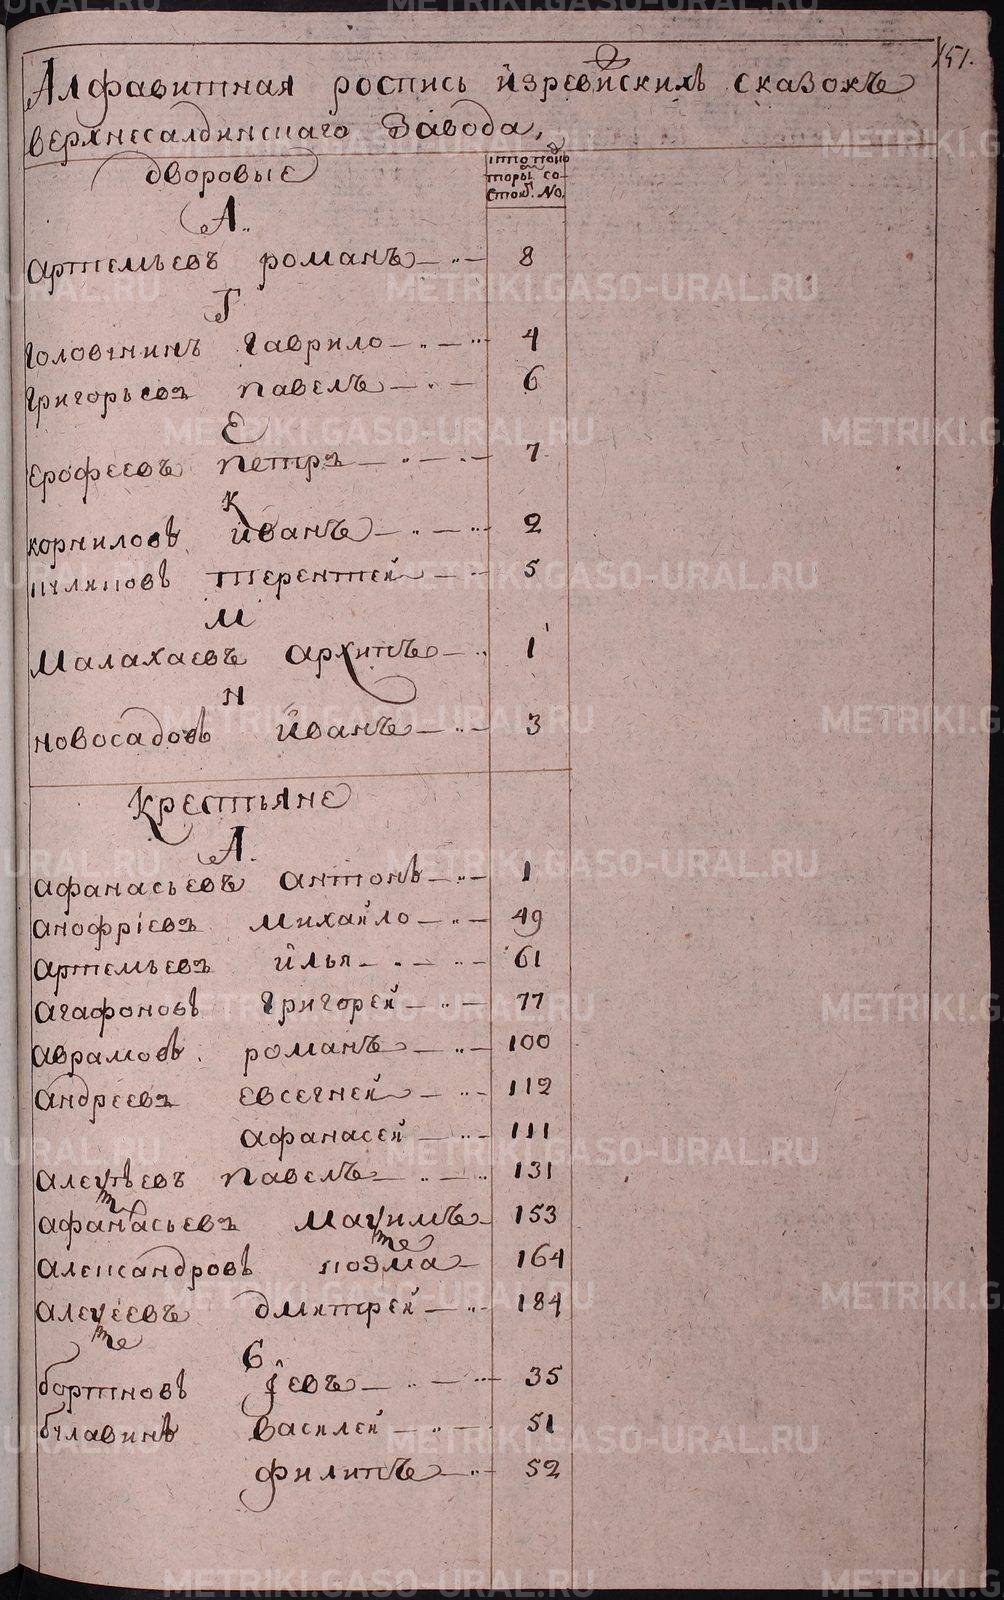 151.
Алфавитная роспись изревискихъ сказокъ
верхнесалдинскаго завода,
дворовые
кто подко
торы со-
стоит. No.
А.
артемьевъ романъ — .. — 8
Г
головчнинъ гаврило — .. — ... 4
григорьевъ павелъ — .. — 6
Е
ерофеевъ петръ — .. — .. 7
К
корниловъ иванъ — .. — ... 2
куликовъ терентей — .. 5
М
Малахаевъ архипъ — .. 1
Н
новосадовъ иванъ — .. — 3
крестьяне
А.
афанасьевъ антонъ — .. — 1
анофріевъ михаило — .. — 49
артемьевъ илья — . — .. — 61
агафоновъ григорей — .. — 77
аврамовъ романъ — .. — 100
андреевъ евсегней — .. — 112
афанасей — .. — 111
алеуѣевъ павелъ — .. — .. 131
те
афанасьевъ маѵимъ 153
те
александровъ козма — 164
алеѵеевъ дмитрей — .. 184
те
б
бортновъ іевъ — .. — ... 35
булавинъ василей — .. — 51
филипъ — .. 52
METRIKI.GASO-URAL.RU